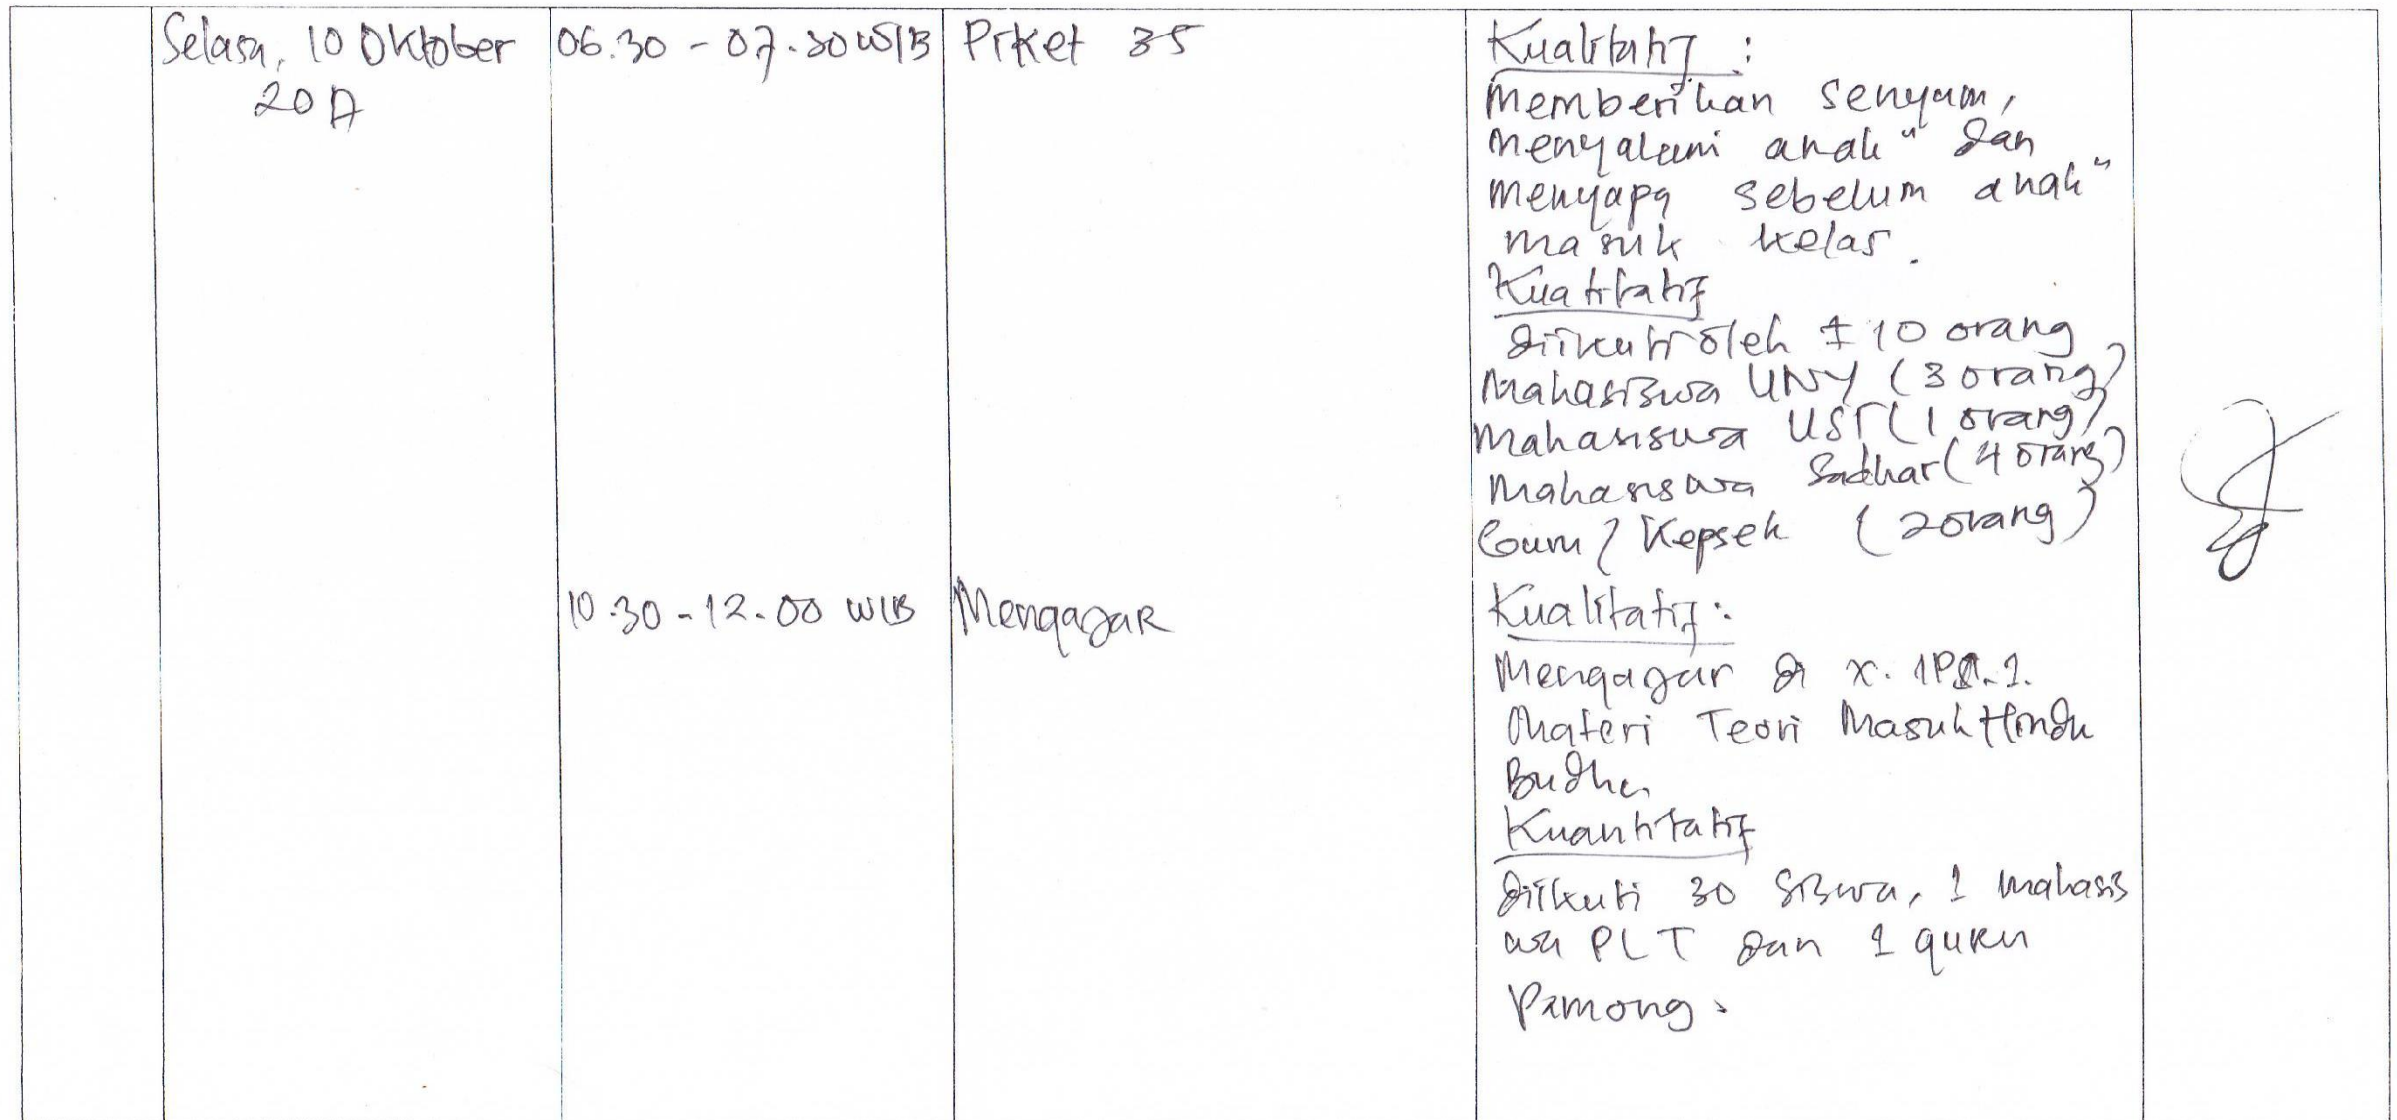 Selasa, 10 Oktober
2017
06.30 - 07.30 WIB
Piket 3S
Kualitatif :
Memberikan senyum,
menyalami anak" dan
menyapa sebelum anak"
masuk kelas.
Kuatitatif
diikuti oleh ± 10 orang
Mahasiswa UNY (3 orang)
Mahasiswa UST (1 orang)
Mahasiswa Sadhar (4 orang)
Guru / Kepsek (2 orang)
10.30 - 12.00 WIB
Mengajar
Kualitatif :
Mengajar di X. IPA.1.
Materi Teori Masuk Hindu
Budha
Kuantitatif
diikuti 30 siswa, 1 mahasis
wa PLT dan 1 guru
Pamong.